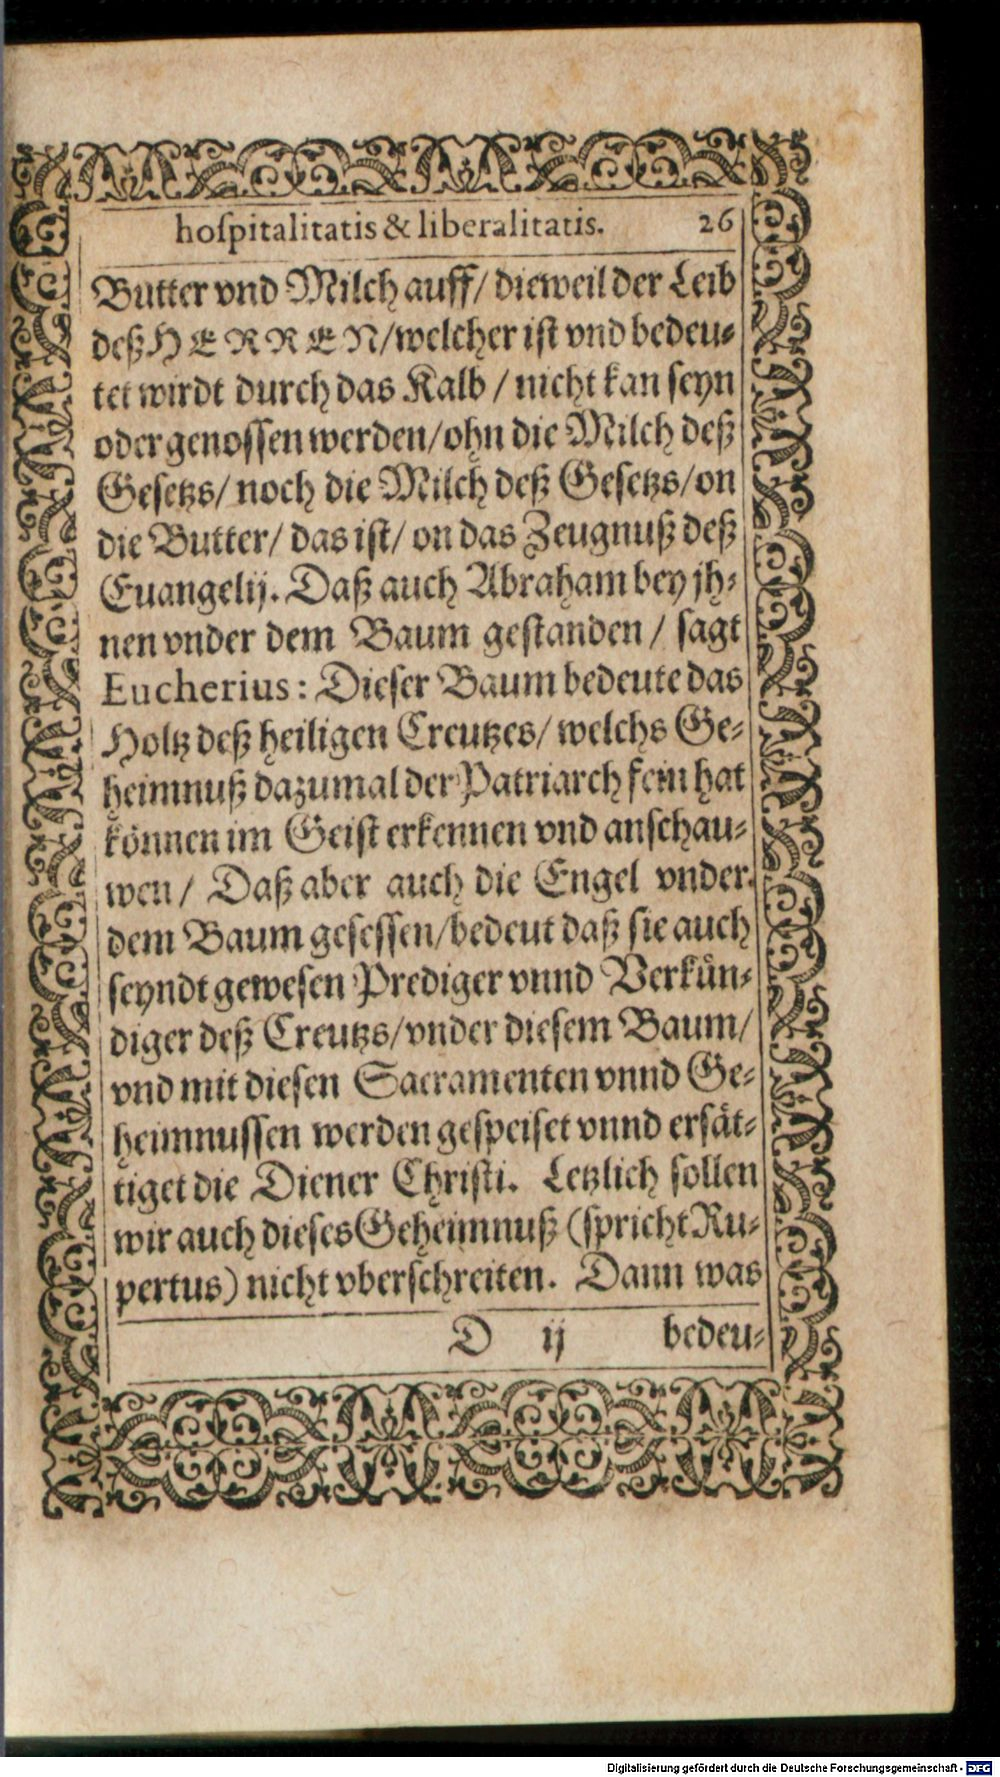 hoſpitalitatis & liberalitatis. 26
Butter vnd Milch auff/ dieweil der Leib
deß HERREN/welcher iſt vnd bedeu-
tet wirdt durch das Kalb / nicht kan ſeyn
oder genoſſen werden/ohn die Milch deß
Geſetzs/ noch die Milch deß Geſetzs/on
die Butter/ das iſt/ on das Zeugnuß deß
Euangelij. Daß auch Abraham bey jh-
nen vnder dem Baum geſtanden / ſagt
Eucherius: Dieſer Baum bedeute das
Holtz deß heiligen Creutzes/ welchs Ge-
heimnuß dazumal der Patriarch fein hat
koͤnnen im Geiſt erkennen vnd anſchau-
wen/ Daß aber auch die Engel vnder
dem Baum geſeſſen/bedeut daß ſie auch
ſeyndt geweſen Prediger vnnd Verkuͤn-
diger deß Creutzs/vnder dieſem Baum/
vnd mit dieſen Sacramenten vnnd Ge-
heimnuſſen werden geſpeiſet vnnd erſaͤt-
tiget die Diener Chriſti. Letzlich ſollen
wir auch dieſes Geheimnuß (ſpricht Ru-
pertus) nicht vberſchreiten. Dann was
D ij bedeu-
Digitalisierung gefördert durch die Deutsche Forschungsgemeinschaft - DFG